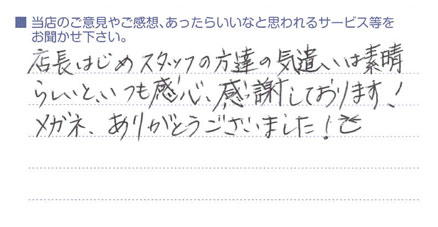 ■ 当店のご意見やご感想、あったらいいなと思われるサービス等を
お聞かせ下さい。
店長はじめスタッフの方達の気遣いは素晴
らしいと、いつも感心、感謝しております!
メガネ、ありがとうございました!